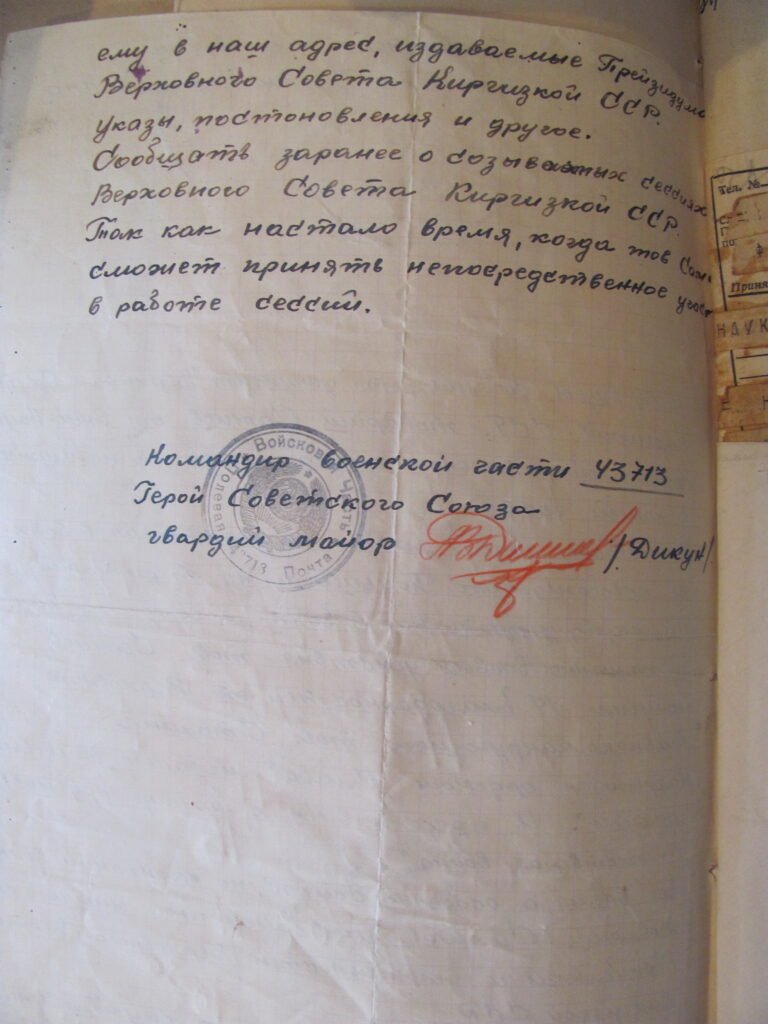 ему в наш адрес, издаваемые Прейзидумо
Верховного Совета Киргизкой ССР.
указы, постоновления и другое.
Сообщать заранее о созываемых сессиях
Верховного Совета Киргизкой ССР.
Так как настало время, когда тов
сможет принять непосредственное учас
в работе сессии.
Командир военской части 43713
Герой Советского Союза
гвардий майор /Дикун/
Войсковая Часть
Полевая Почта
Тел. №
Приня
НАУК